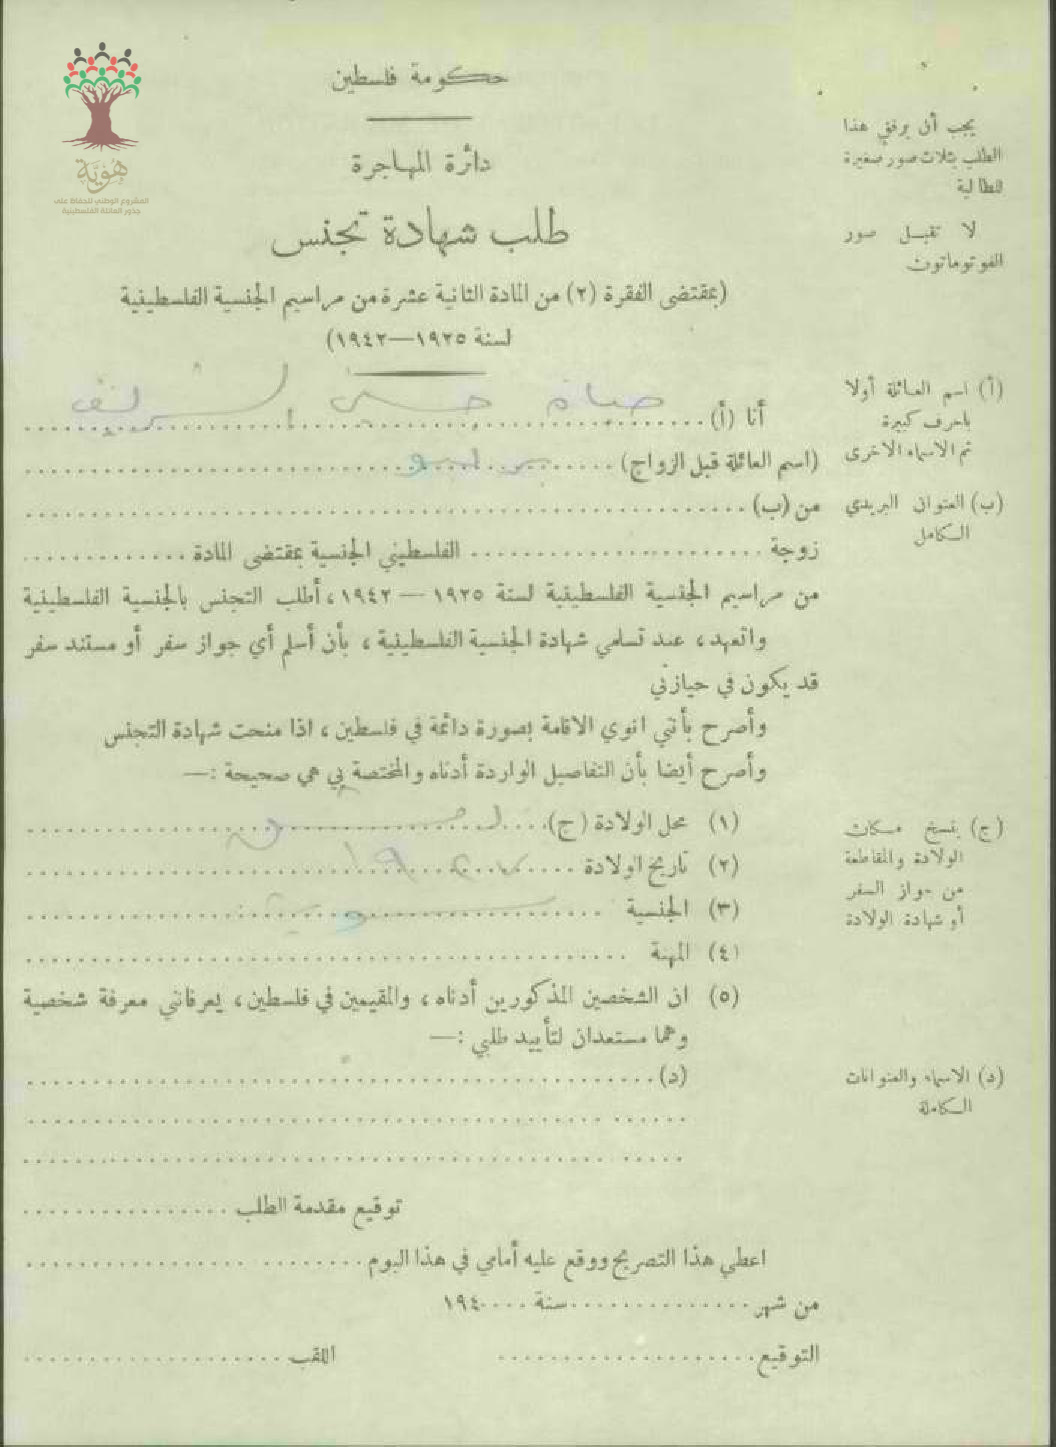 هوية
المشروع الوطني للحفاظ على
جذور العائلة الفلسطينية
حكومة فلسطين
دائرة المهاجرة
طلب شهادة تجنس
(بمقتضى الفقرة (٢) من المادة الثانية عشرة من مراسيم الجنسية الفلسطينية
لسنة ١٩٢٥—١٩٤٢)
يجب أن يرفق هذا
الطلب بثلاث صور صغيرة
للطالبة
لا تقبل صور
الفوتوماتون
أنا (أ) حسن الشريف
(أ) اسم العائلة أولا
باحرف كبيرة
ثم الاسماء الاخرى
(اسم العائلة قبل الزواج)
من (ب)
(ب) العنوان البريدي
الكامل
زوجة الفلسطيني الجنسية بمقتضى المادة
من مراسيم الجنسية الفلسطينية لسنة ١٩٢٥ — ١٩٤٢، أطلب التجنس بالجنسية الفلسطينية
واتعهد، عند تسلمي شهادة الجنسية الفلسطينية، بأن أسلم أي جواز سفر أو مستند سفر
قد يكون في حيازتي
وأصرح بأنني انوي الاقامة بصورة دائمة في فلسطين، اذا منحت شهادة التجنس
وأصرح أيضا بأن التفاصيل الواردة أدناه والمختصة بي هي صحيحة :—
(١) محل الولادة (ج)
(ج) ينسخ مكان
الولادة والمقاطعة
من جواز السفر
أو شهادة الولادة
(٢) تاريخ الولادة
(٣) الجنسية
(٤) المهنة
(٥) ان الشخصين المذكورين أدناه، والمقيمين في فلسطين، يعرفانني معرفة شخصية
وهما مستعدان لتأييد طلبي :—
(د)
(د) الاسماء والعنوانات
الكاملة
توقيع مقدمة الطلب
اعطي هذا التصريح ووقع عليه أمامي في هذا اليوم
من شهر سنة ١٩٤
التوقيع اللقب